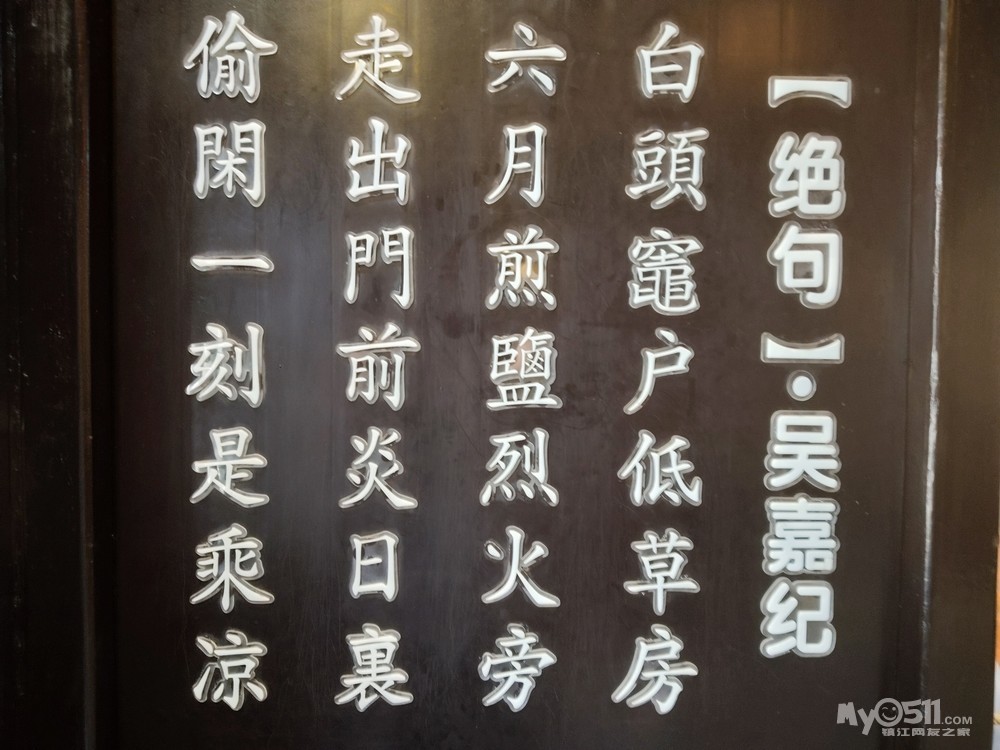 【绝句】·吴嘉纪
白頭竈户低草房
六月煎鹽烈火旁
走出門前炎日裏
偷閑一刻是乘凉
My0511.COM
镇江网友之家